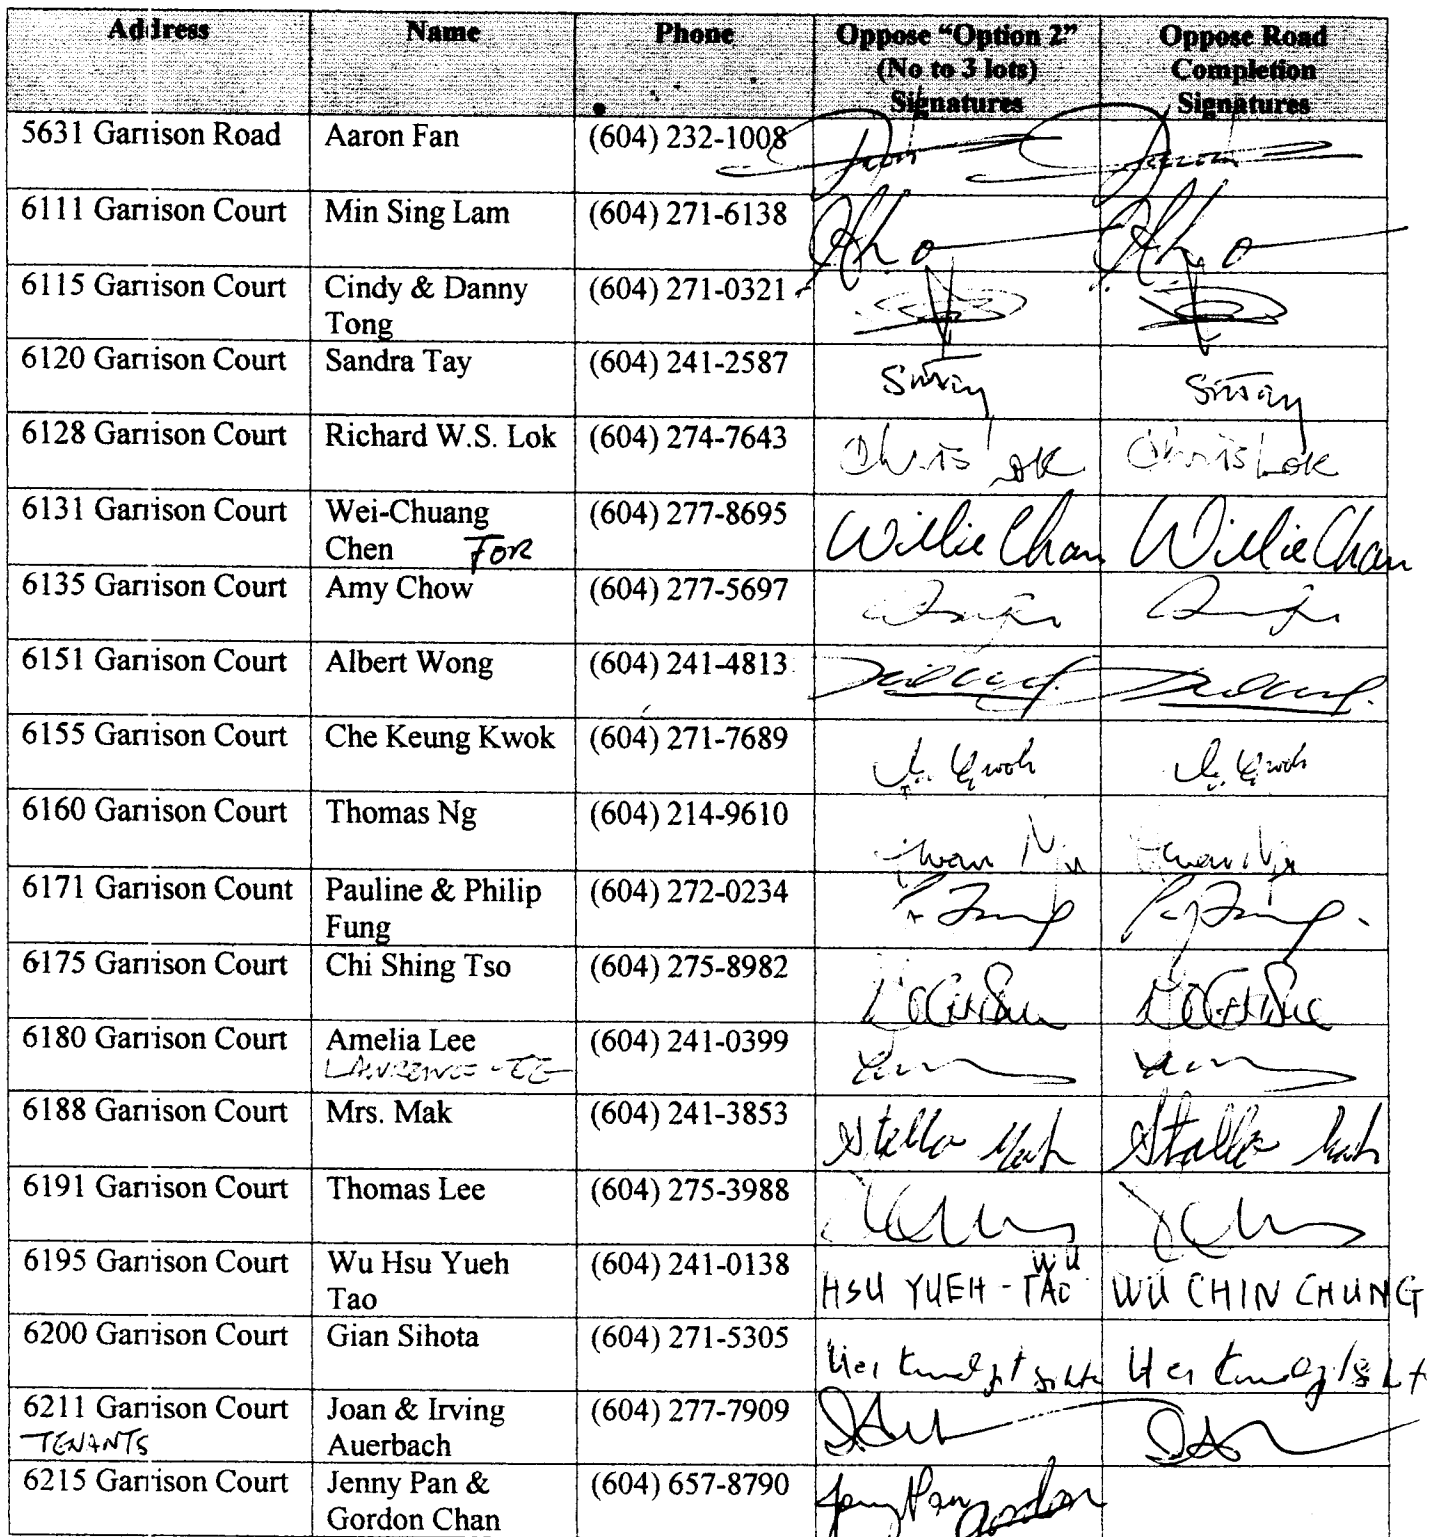 Address Name Phone Oppose "Option 2" Oppose Road
(No to 3 lots) Completion
Signatures Signatures
5631 Garrison Road Aaron Fan (604) 232-1008
6111 Garrison Court Min Sing Lam (604) 271-6138
6115 Garrison Court Cindy & Danny (604) 271-0321
Tong
6120 Garrison Court Sandra Tay (604) 241-2587
6128 Garrison Court Richard W.S. Lok (604) 274-7643 Chris Lok Chris Lok
6131 Garrison Court Wei-Chuang (604) 277-8695 Willie Chan Willie Chan
Chen FOR
6135 Garrison Court Amy Chow (604) 277-5697
6151 Garrison Court Albert Wong (604) 241-4813
6155 Garrison Court Che Keung Kwok (604) 271-7689
6160 Garrison Court Thomas Ng (604) 214-9610
6171 Garrison Count Pauline & Philip (604) 272-0234
Fung
6175 Garrison Court Chi Shing Tso (604) 275-8982
6180 Garrison Court Amelia Lee (604) 241-0399
LAWRENCE
6188 Garrison Court Mrs. Mak (604) 241-3853 Stella Mak Stella Mak
6191 Garrison Court Thomas Lee (604) 275-3988
6195 Garrison Court Wu Hsu Yueh (604) 241-0138 WU
Tao HSU YUEH-TAO WU CHIN CHUNG
6200 Garrison Court Gian Sihota (604) 271-5305
6211 Garrison Court Joan & Irving (604) 277-7909
TENANTS Auerbach
6215 Garrison Court Jenny Pan & (604) 657-8790 Jenny Pan Gordon
Gordon Chan